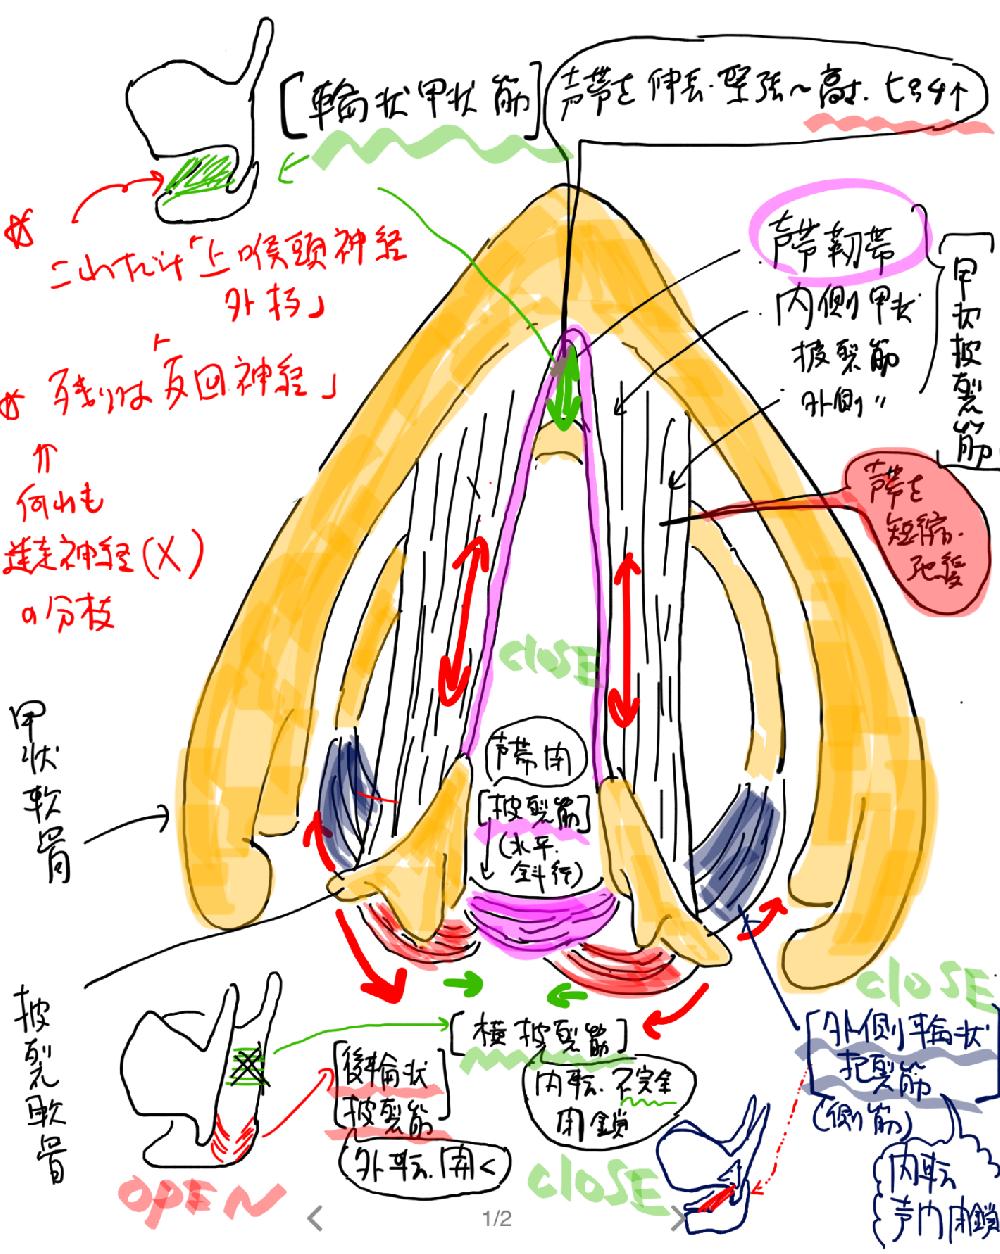 [輪状甲状筋]
声帯を伸長・緊張〜高さ・ピッチ↑
これだけ「上喉頭神経
外枝」
残りは「反回神経」
何れも
迷走神経(X)
の分枝
声帯靭帯
内側甲状
披裂筋
外側〃
甲状披裂筋
声帯を
短縮・
弛緩
CLOSE
声帯閉
[披裂筋]
(水平・
斜行)
甲状軟骨
披裂軟骨
[横披裂筋]
内転・不完全
閉鎖
CLOSE
[後輪状
披裂筋]
外転・開く
OPEN
CLOSE
[外側輪状
披裂筋]
(側筋)
内転
声門閉鎖
1/2